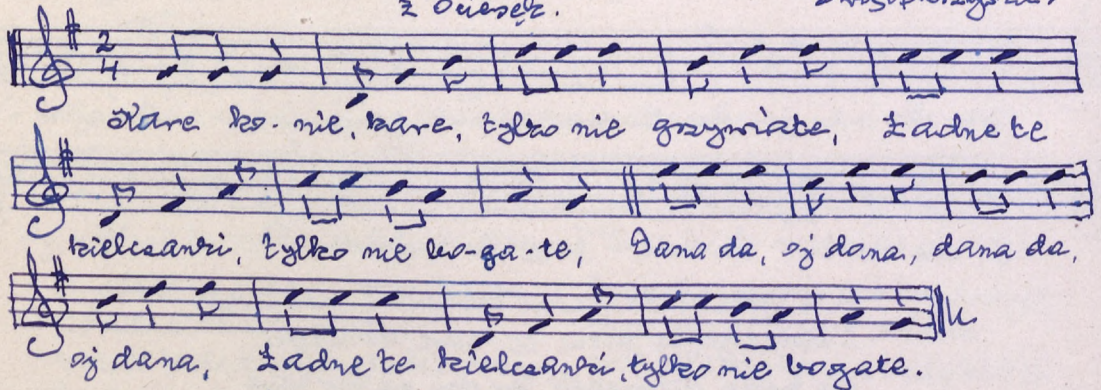 z Ociesęk.
2
4
Kare ko-nie, kare, tylko nie grzywiate, Ładne te
kielczanki, tylko nie bo-ga-te, Dana da, oj dana, dana da,
oj dana, Ładne te kielczanki, tylko nie bogate.